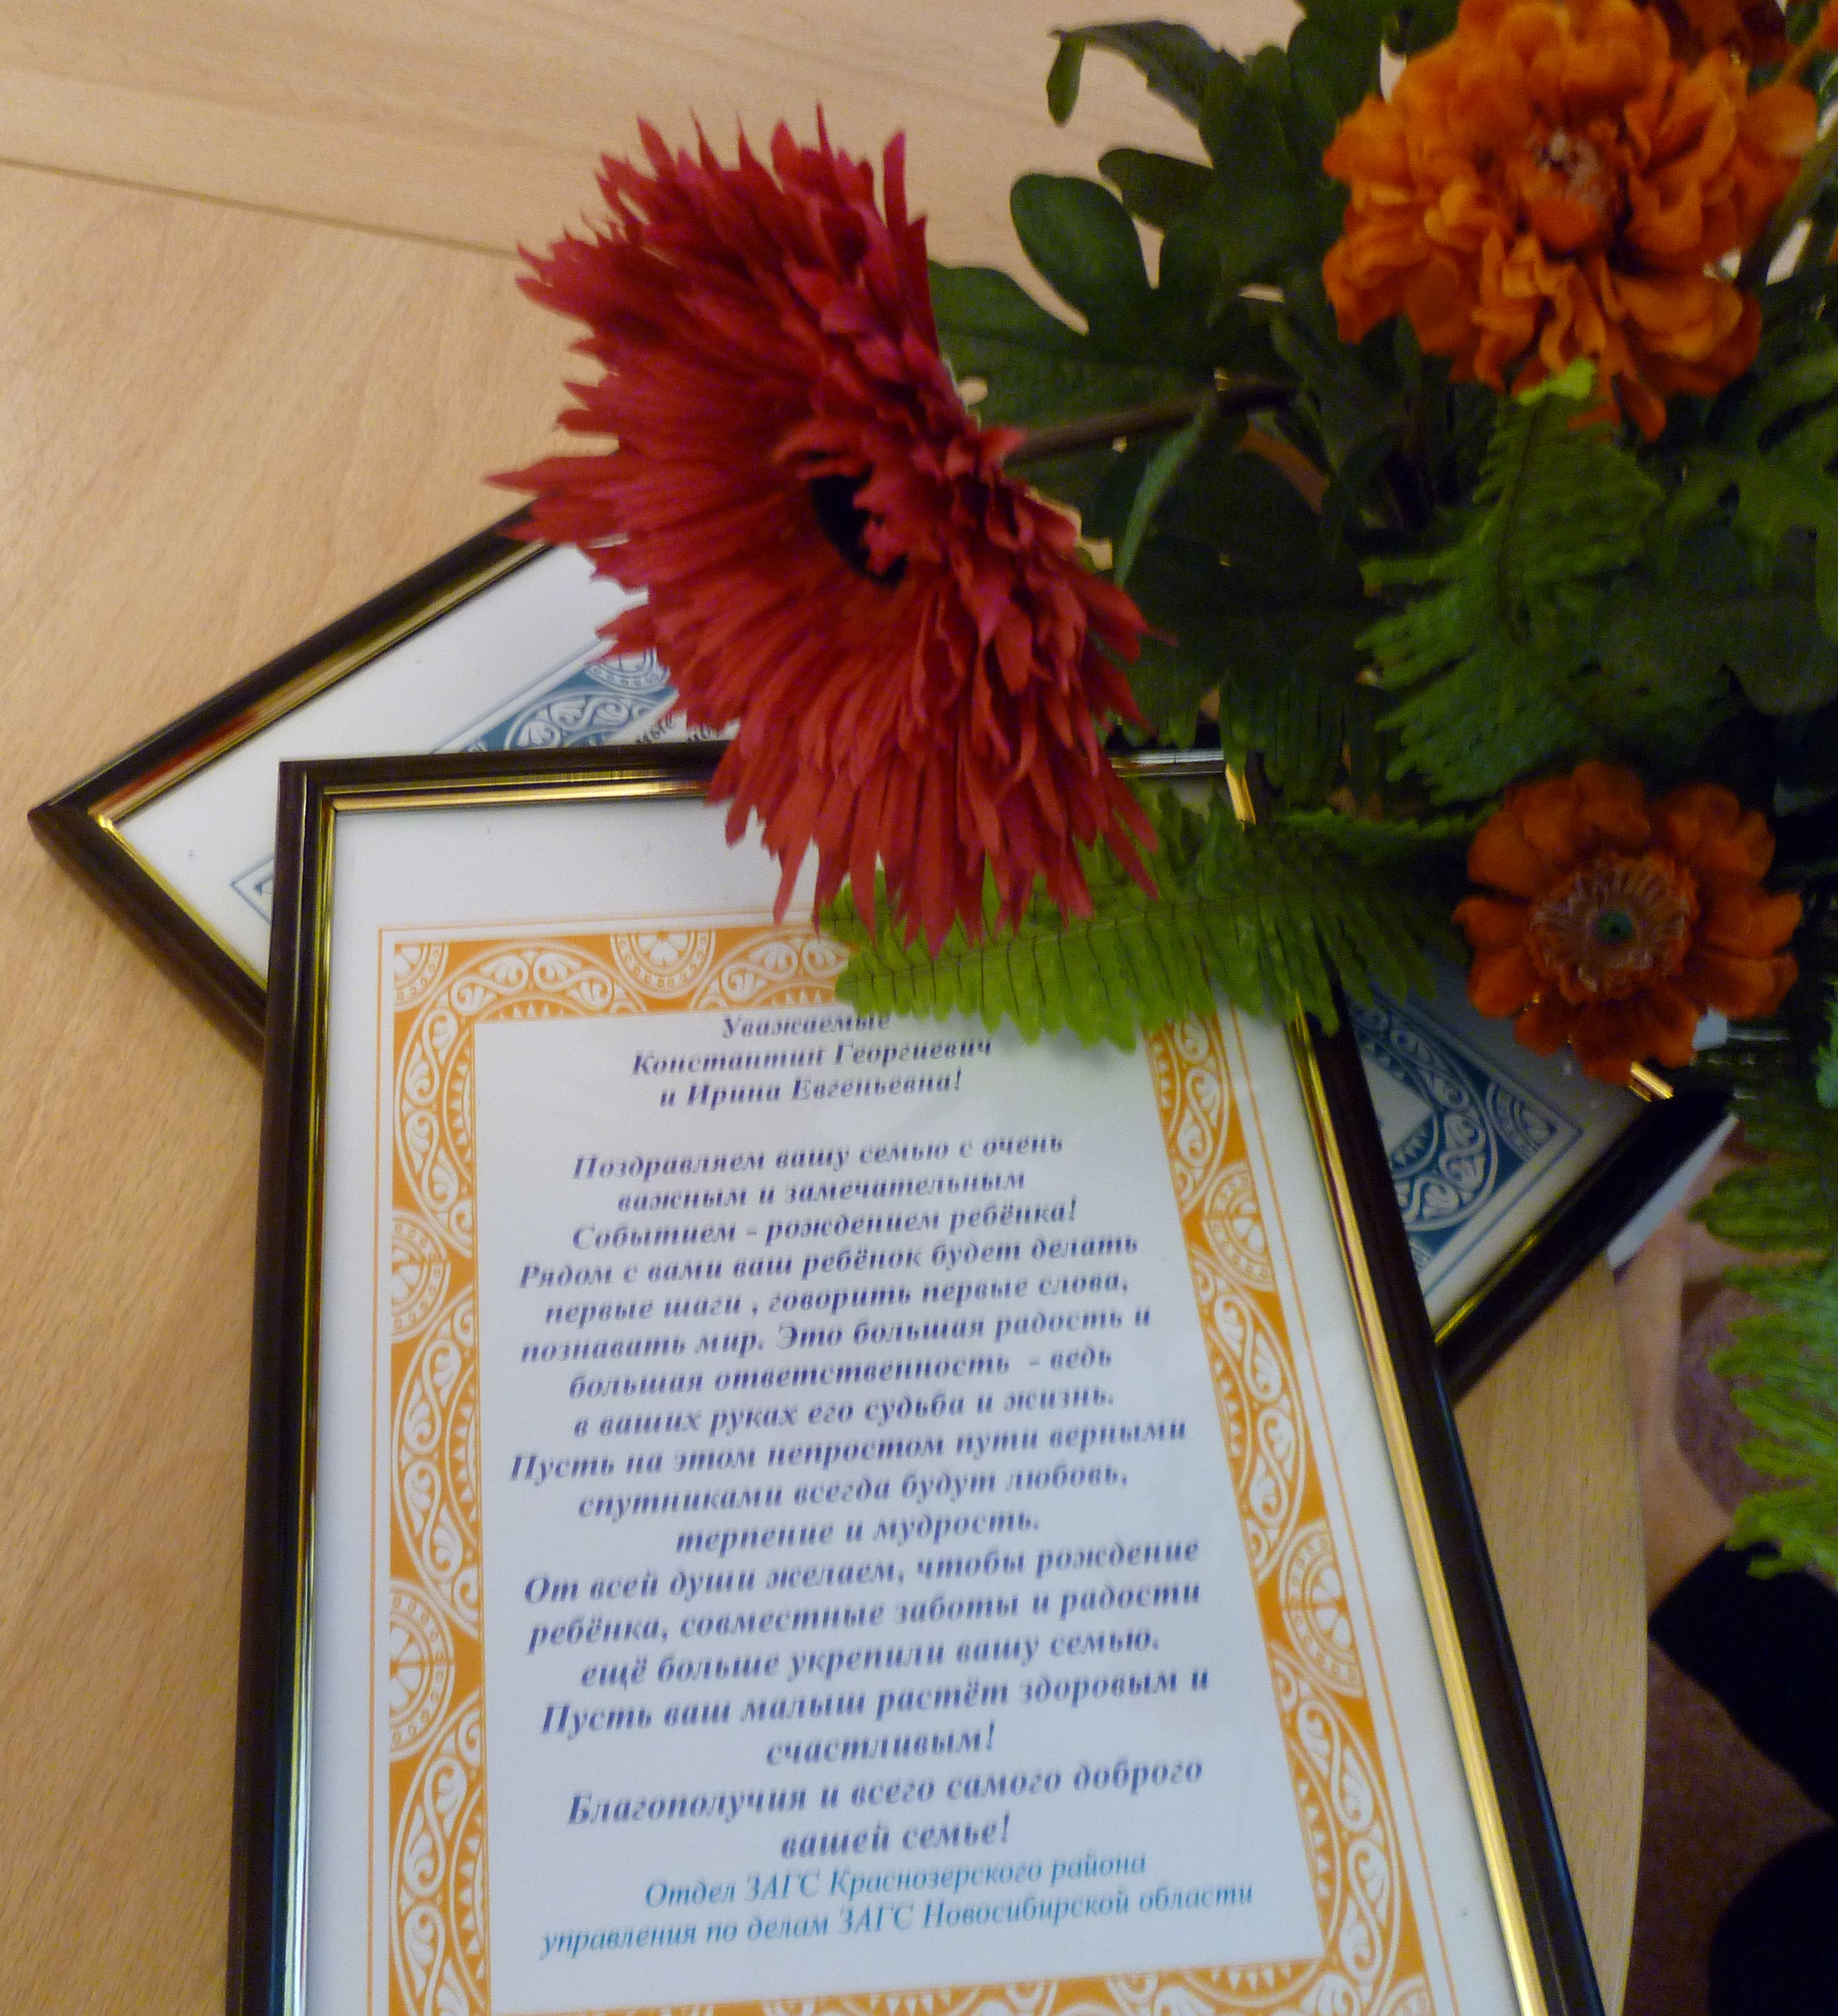 Уважаемые
Константин Георгиевич
и Ирина Евгеньевна!
Поздравляем вашу семью с очень
важным и замечательным
Событием - рождением ребёнка!
Рядом с вами ваш ребёнок будет делать
первые шаги , говорить первые слова,
познавать мир. Это большая радость и
большая ответственность - ведь
в ваших руках его судьба и жизнь.
Пусть на этом непростом пути верными
спутниками всегда будут любовь,
терпение и мудрость.
От всей души желаем, чтобы рождение
ребёнка, совместные заботы и радости
ещё больше укрепили вашу семью.
Пусть ваш малыш растёт здоровым и
счастливым!
Благополучия и всего самого доброго
вашей семье!
Отдел ЗАГС Краснозерского района
управления по делам ЗАГС Новосибирской области